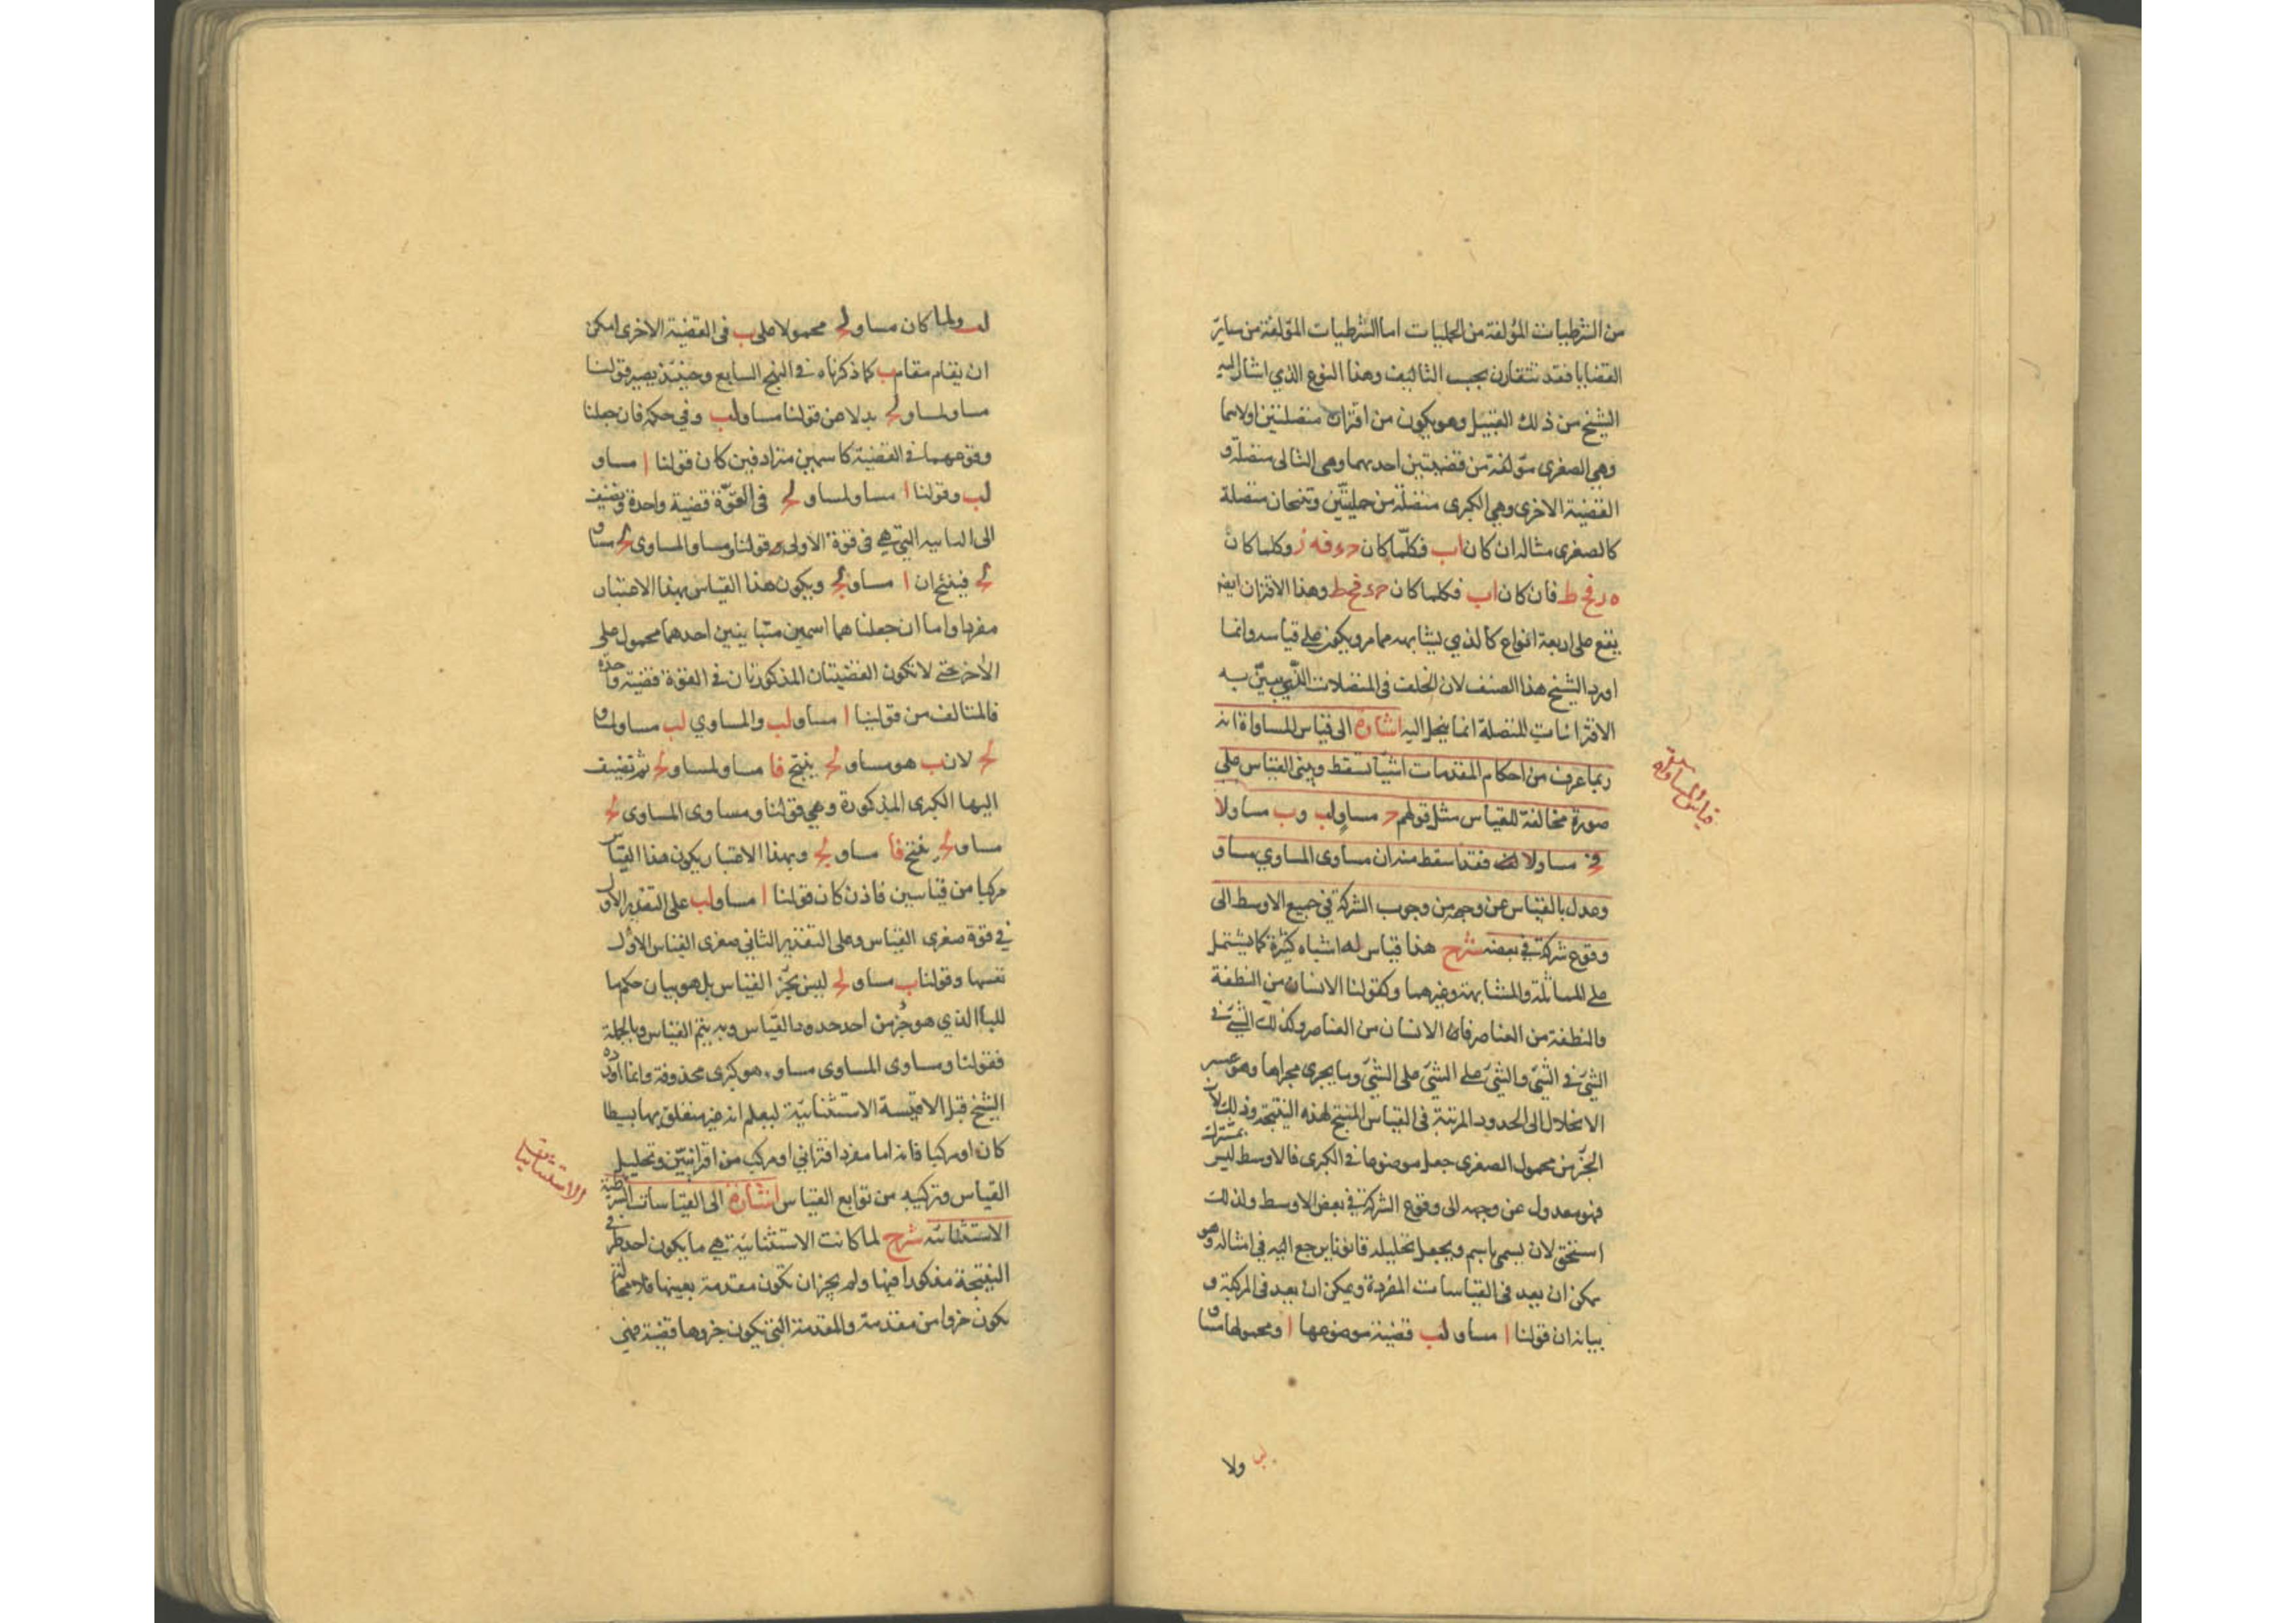 من الشرطيات المؤلفة من الحمليات اما الشرطيات المؤلفة من ساير
القضايا فقد تتقارن بحسب التاليف وهذا النوع الذي اشار اليه
الشيخ من ذلك القبيل وهو يكون من اقتران متصلتين اولاهما
وهي الصغرى مؤلفة من قضيتين احديهما وهي التالى متصلة و
القضية الاخرى وهي الكبرى متصلة من حمليتين وتنتجان متصلة
كالصغرى مثاله ان كان اب فكلما كان حد فه ز وكلما كان
ه ز فح ط فان كان اب فكلما كان حد فح ط وهذا الاقتران ايضا
يقع على اربعة انواع كالذي يشابهه مما مر ويكون على قياسه وانما
اورد الشيخ هذا الصنف لان الخلف فى المتصلات الذي يبين به
الاقترانات المتصلة انما ينحل اليه اشارة الى قياس المساواة انه
ربما عرف من احكام المقدمات اشيآ تسقط ويبنى القياس على
صورة مخالفة للقياس مثل قولهم ح مساو لب وب مساو لا
فح مساو لا فقد اسقط منه ان مساوى المساوي مساو
وعدل بالقياس عن وجهه من وجوب الشركة في جميع الاوسط الى
وقوع شركة في بعضه شرح هذا قياس له اشباه كثيرة كما يشتمل
على المماثلة والمشابهة وغيرهما وكقولنا الانسان من النطفة
والنطفة من العناصر فالانسان من العناصر وكذلك الشئ في
الشئ في الشئ والشئ على الشئ على الشئ وما يجرى مجراها وهو عسر
الانحلال الى الحدود المرتبة فى القياس المنتج لهذه النتيجة وذلك لان
الجزء من محمول الصغرى جعل موضوعا في الكبرى فالاوسط ليس بمشترك
فهو معدول عن وجهه الى وقوع الشركة في بعض الاوسط ولذلك
استحق لان يسمى باسم ويجعل تحليله قانونا يرجع اليه في امثاله وهو
يمكن ان يعد فى القياسات المفردة ويمكن ان يعد فى المركبة و
بيانه ان قولنا ا مساو لب قضية موضوعها ا ومحمولها مساو
قياس المساواة
لب ولما كان مساو لح محمولا على ب فى القضية الاخرى امكن
ان يقام مقام ب كما ذكرناه في النهج السابع وحينئذ يصير قولنا
مساو لمساو لح بدلا عن قولنا مساو لب وفي حكمه فان جعلنا
وقوعهما في القضية كاسمين مترادفين كان قولنا ا مساو
لب وقولنا ا مساو لمساو لح فى القوة قضية واحدة ونضيف
الى الثانية التي هي فى قوة الاولى قولنا ومساو المساوى لح مساو
لح فينتج ان ا مساو لح ويكون هذا القياس بهذا الاعتبار
مفردا واما ان جعلناهما اسمين متباينين احدهما محمول على
الآخر حتى لا تكون القضيتان المذكورتان في القوة قضية واحدة
فالمتالف من قولينا ا مساو لب والمساوي لب مساو لمساو
لح لان ب هو مساو لح ينتج فا مساو لمساو لح ثم تضيف
اليها الكبرى المذكورة وهي قولنا ومساوى المساوى لح
مساو لح ينتج فا مساو لح وبهذا الاعتبار يكون هذا القياس
مركبا من قياسين فاذن كان قولنا ا مساو لب على التقدير الاول
في قوة صغرى القياس وعلى التقدير الثانى صغرى القياس الاول
نفسها وقولنا ب مساو لح ليس بجزء القياس بل هو بيان حكم ما
للبا الذي هو جزء من احد حدود القياس وبه يتم القياس وبالجملة
فقولنا ومساوى المساوى مساو هو كبرى محذوفة وانما اورده
الشيخ قبل الاقيسة الاستثنائية ليعلم انه غير متعلق بها بسيطا
كان او مركبا فانه اما مفرد اقتراني او مركب من اقترانيين وتحليل
القياس وتركيبه من توابع القياس اشارة الى القياسات الشرطية
الاستثنائية شرح لما كانت الاستثنائية هي ما يكون احد طرفي
النتيجة مذكورا فيها ولم يجز ان تكون مقدمة بعينها
يكون جزوا من مقدمة والمقدمة التي تكون جزوها قضية فهي
ولا